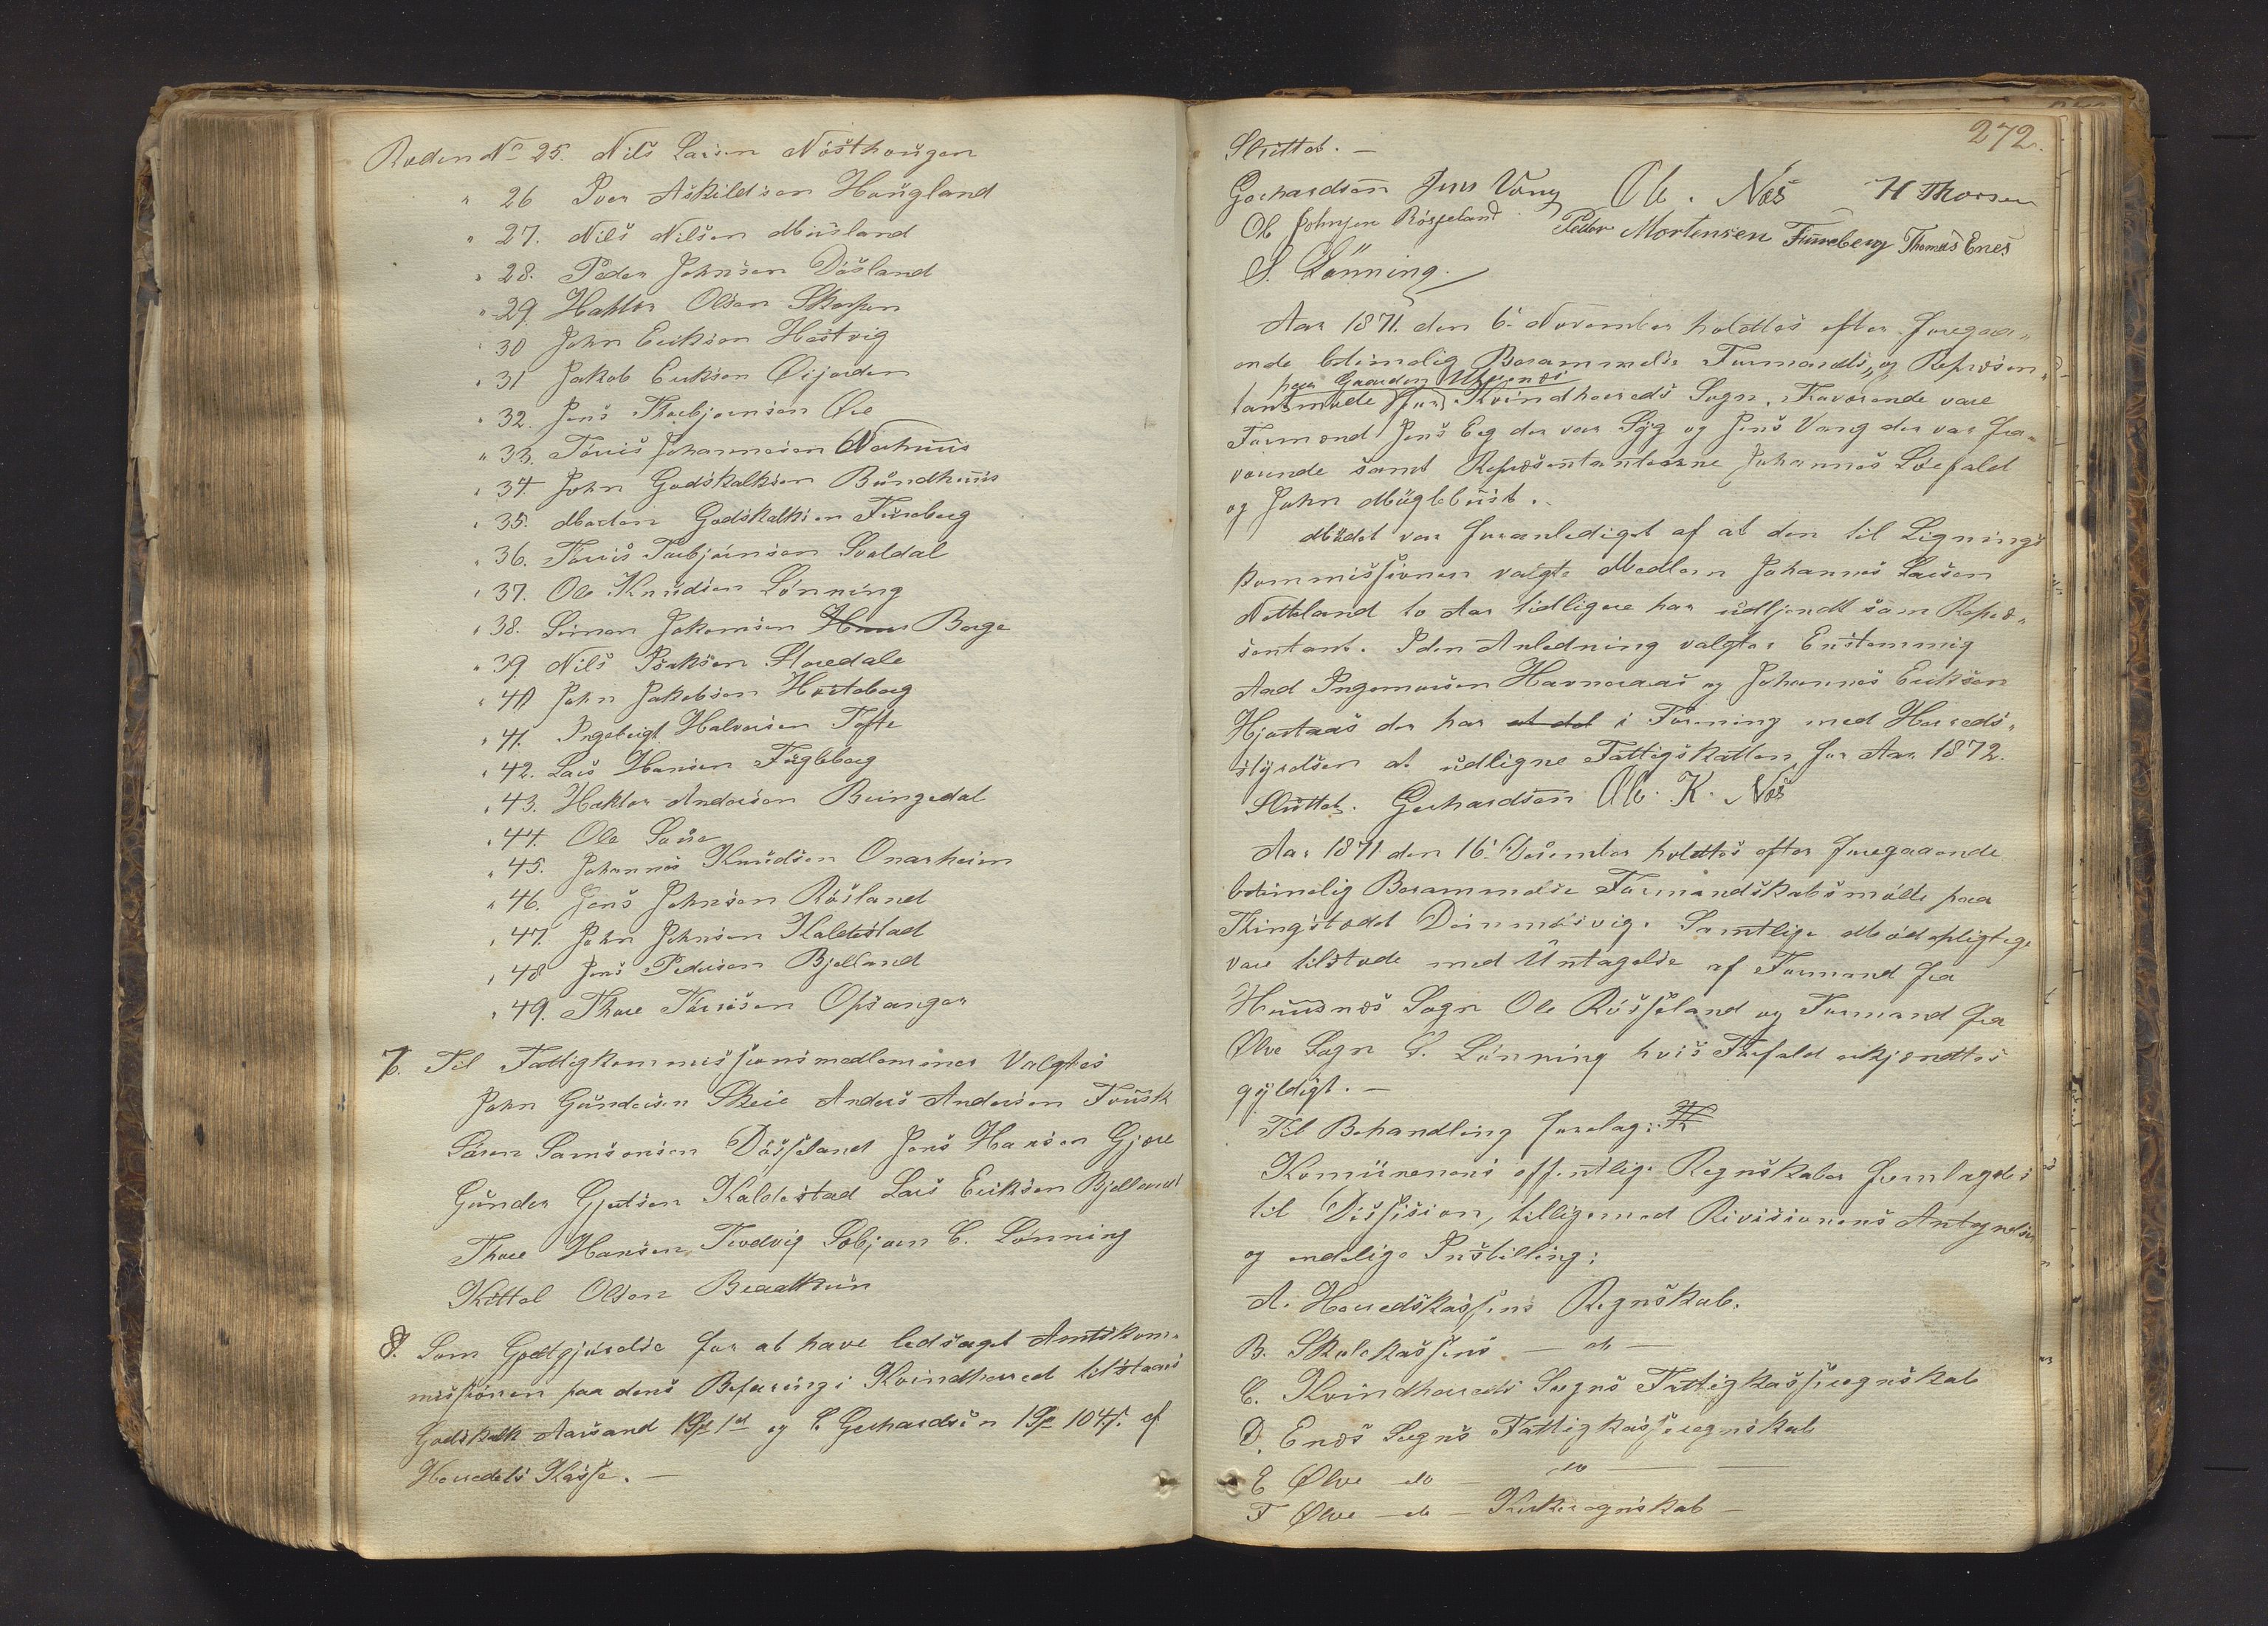 Roden No 25. Nils Larsen Nösthougen
" 26 Iver Askildsen Hougland
" 27. Nils Nilsen Muusland
" 28. Peder Johnsen Døsland
" 29. Haktor Olsen Skorpen
" 30 John Eriksen Hestvig
" 31 Jakob Eriksen Øijorden
" 32. Jens Thorbjørnsen Øie
" 33. Tørris Johannesen Nerhuus
" 34 John Godskalksen Bundhuus
" 35. Morten Godskalksen Fureberg
" 36. Tørris Torbjørnsen Sveldal
" 37. Ole Knudsen Lønning
" 38. Simon Jokomsen Berge
" 39 Nils Isaksen Storedale
" 40 John Jakobsen Hvitebørg
" 41. Ingebrigt Halvorsen Tofte
" 42. Lars Hansen Fugleberg
" 43. Haktor Andersen Bringedal
" 44. Ole
" 45. Johannes Knudsen Onarheim
" 46. Jens Johnsen Røsland
" 47. John Johnsen Kaldestad
" 48 Jens Pedersen Bjelland
" 49. Thore Tørrisen Opsanger
7. Til Fattigkommissionsmedlemmer Valgtes
John Gundersen Skeie Anders Andersen Fousk
Søren Samsonsen Døssland Jens Hansen Gjære
Gunder Gjertsen Kaldestad Lars Eriksen Bjelland
Thore Hansen Trodvig Sebjørn C. Lønning
Kittel Olsen Bradthun
8. Som Godtgjørelse for at have ledsaget Amtskom-
missionen paa dens Befaring i Kvindherred tilstaaes
Godskalk Aarsand og C. Gerhardsen af
Herredets Kasse. —
272.
Sluttet. —
Gerhardsen Jens Vang Ole. Næs H Thorsen
Ole Johnsen Røsseland Peder Mortensen Fureberg Thomas Enes
S. Lönning.
Aar 1871. den 6. November holdttes efter Foregaa-
ende betimelig Berammelse Formands- og Repræsen-
paa Gaarden
tantmøde for Kvindherreds Sogn. Fraværende vare
Formænd Jens Eeg der var Syg og Jens Vang der var fra-
værende samt Repræsentanterne Johannes Løefald
og John Myglebust.
Mødet var foranlediget af at den til Lignings
kommissionen valgte Medlem Johannes Larsen
Netteland to Aar tidligere har udtjendt som Repræ-
sentant. I den Anledning valgtes Enstemmig
Aad Ingemarsen Havneraas og Johannes Eriksen
Hjortaas der har at del i Forening med Herreds-
styrelsen at udligne Fattigskatten for Aar 1872.
Sluttet. Gerhardsen Ole. K. Næs
Aar 1871 den 16. Desember holdttes efter foregaaende
betimelig Berammelse Formandskabsmøde paa
Thingstedet Dimmelsvig. Samtlige Mødepligtige
vare tilstede med Untagelse af Formand fra
Huusnæs Sogn Ole Røsseland og Formand fra
Ølve Sogn S. Lønning hvis Forfald erkjendttes
gyldigt. —
Til Behandling forelag:
Komunenens offentlige Regnskaber fremlagdes
til Desision, tilligemed Rivisionens Antegnelser
og endelige Instilling:
A. Herredskassens Regnskab.
B. Skolekassens — do —
C. Kvindherreds Sogns Fattigkasseregnskab
D. Enes Sogns Fattigkasseregnskab
E Ølve — do — do —
F Ølve — do — Kirkeregnskab —